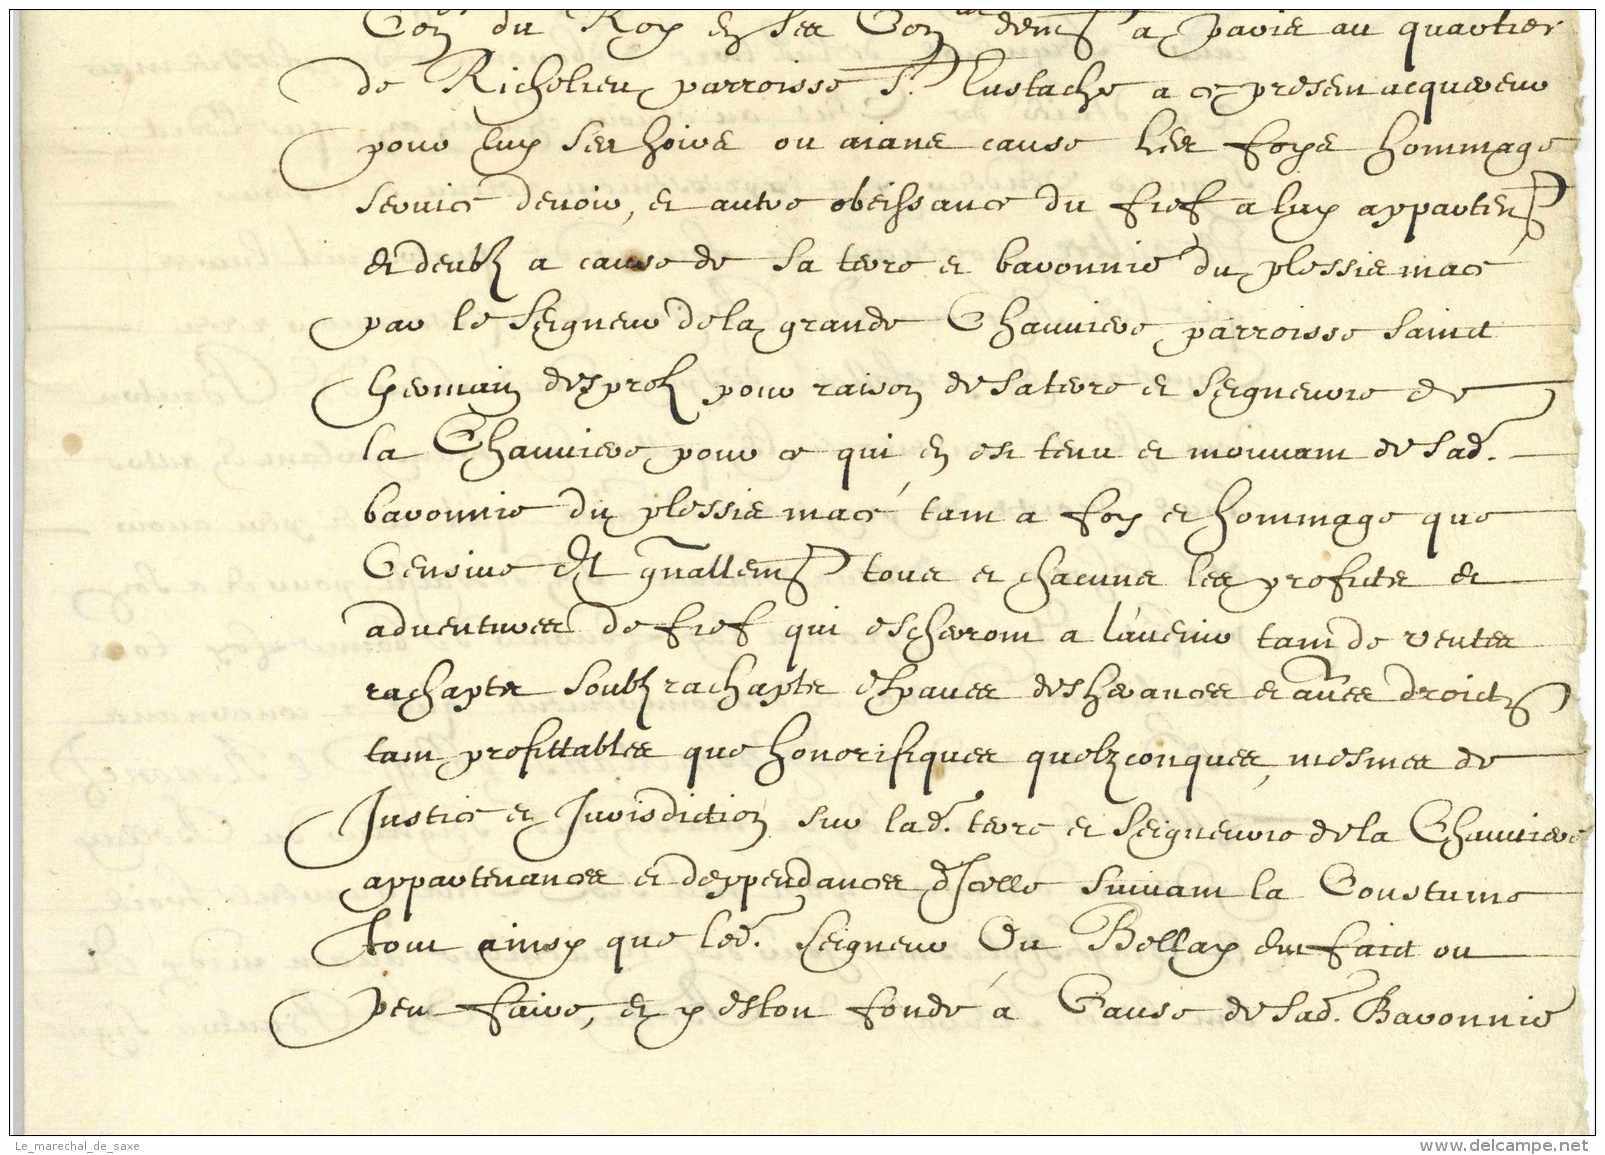 Con.er du Roy en ses Con.als dem.t a paris au quartier
de Richelieu parroisse S.t Eustache a ce present acquereur
pour luy ses hoirs ou aians cause les foys hommage
service devoir, et autre obeissance du fief a luy apparten.t
et deubz a cause de sa terre et baronnie du plessis macé
par le Seigneur de la grande Chauviere parroisse sainct
Germain des prez pour raison de sa terre et Seigneurie de
la Chauviere pour ce qui en est tenu et mouvant de sad.
baronnie du plessis macé tant a foy et hommage que
Censive Et gnallem.t tous et chacuns les profits et
adventures de fief qui escheront a l'avenir tant de ventes
rachapts soubz rachapts espaves desherances et au.es droicts
tant profittables que honorifiques quelzconques, mesmes de
Justice et Jurisdiction sur lad. terre et Seigneurie de la Chauviere
appartenances et deppendances d'Icelle suivant la Coustume
tout ainsy que led. Seigneur Du Bellay eut faict ou
peu faire, et y estoit fondé à Cause de sad. Baronnie
Le_marechal_de_saxe
www.delcampe.net